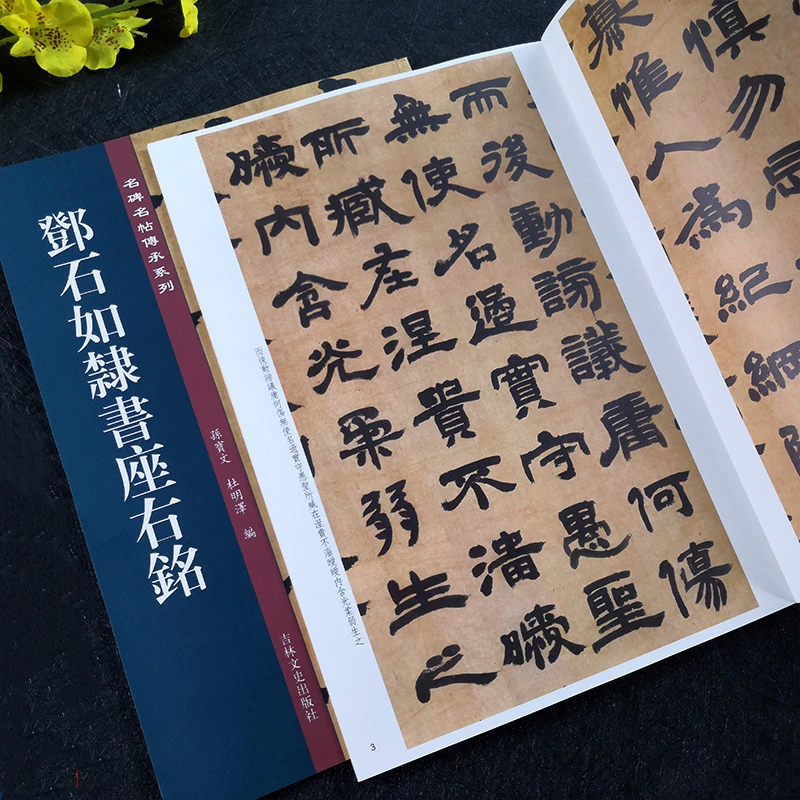 名碑名帖傳承系列
鄧石如隸書座右銘
孫寶文 杜明澤 編
吉林文史出版社
慎勿
慕惟人為紀綱
而後動謗議庸何傷
無使名過實守愚聖
所臧在涅貴不淄曖
曖內含光柔弱生之
而後動謗議庸何傷無使名過實守愚聖所臧在涅貴不淄曖曖內含光柔弱生之
3